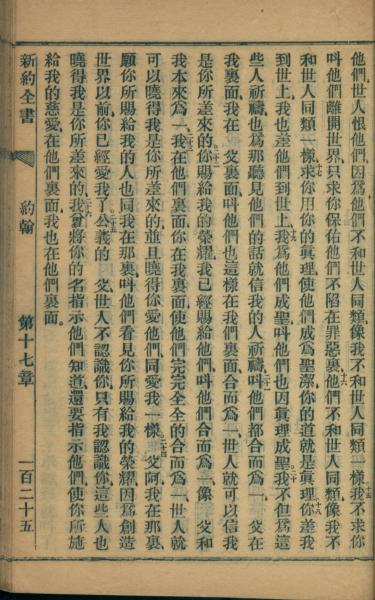 他們、世人恨他們、因爲他們不和世人同類、像我不和世人同類一樣、我不求你
叫他們離開世界、只求你保佑他們不陷在罪惡裏、他們不和世人同類、像我不
和世人同類一樣、求你用你的眞理使他們成爲聖潔、你的道就是眞理、你差我
到世上、我也差他們到世上、我爲他們成聖、叫他們也因眞理成聖、我不但爲這
些人祈禱、也爲那聽見他們的話就信我的人祈禱、叫他們都合而爲一、父在
我裏面、我在 父裏面、叫他們也這樣在我們裏面合而爲一、世人就可以信我
是你所差來的、你賜給我的榮耀、我已經賜給他們、叫他們合而爲一、像 父和
我本來爲一、我在他們裏面、你在我裏面、使他們完完全全的合而爲一、世人就
可以曉得我是你所差來的、並且曉得你愛他們、同愛我一樣、父阿、我在那裏、
願你所賜給我的人也同我在那裏、叫他們看見你所賜給我的榮耀、因爲創造
世界以前、你已經愛我了、公義的 父、世人不認識你、只有我認識你、這些人也
曉得我是你所差來的、我曾將你的名指示他們知道、還要指示他們、使你所施
給我的慈愛、在他們裏面、我也在他們裏面。
新約全書 約翰 第十七章 一百二十五